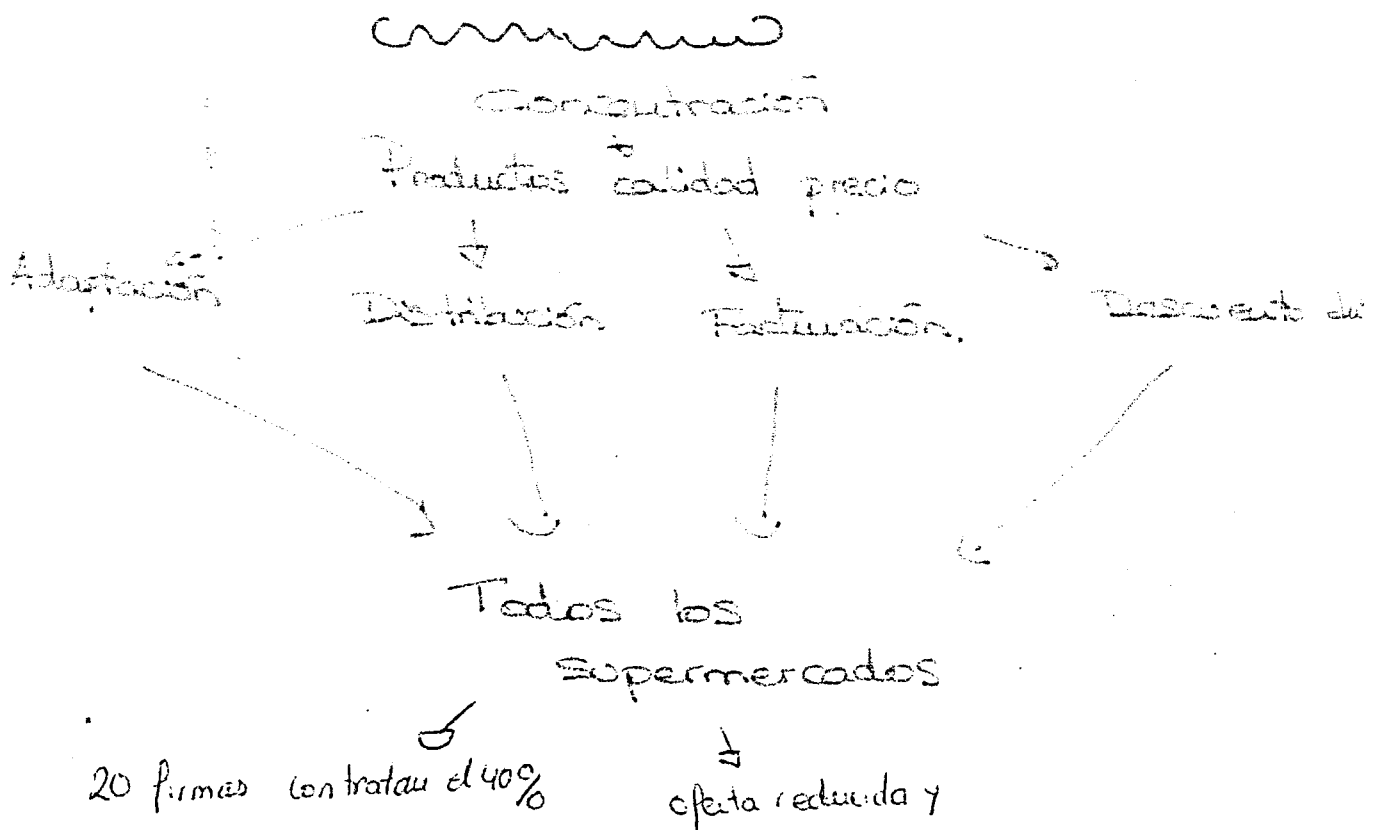 Concentración
Productos calidad precio
Adaptación
Distribución
Facturación.
Descuento
Todos los
supermercados
20 firmas contratan el 40%
oferta reducida y